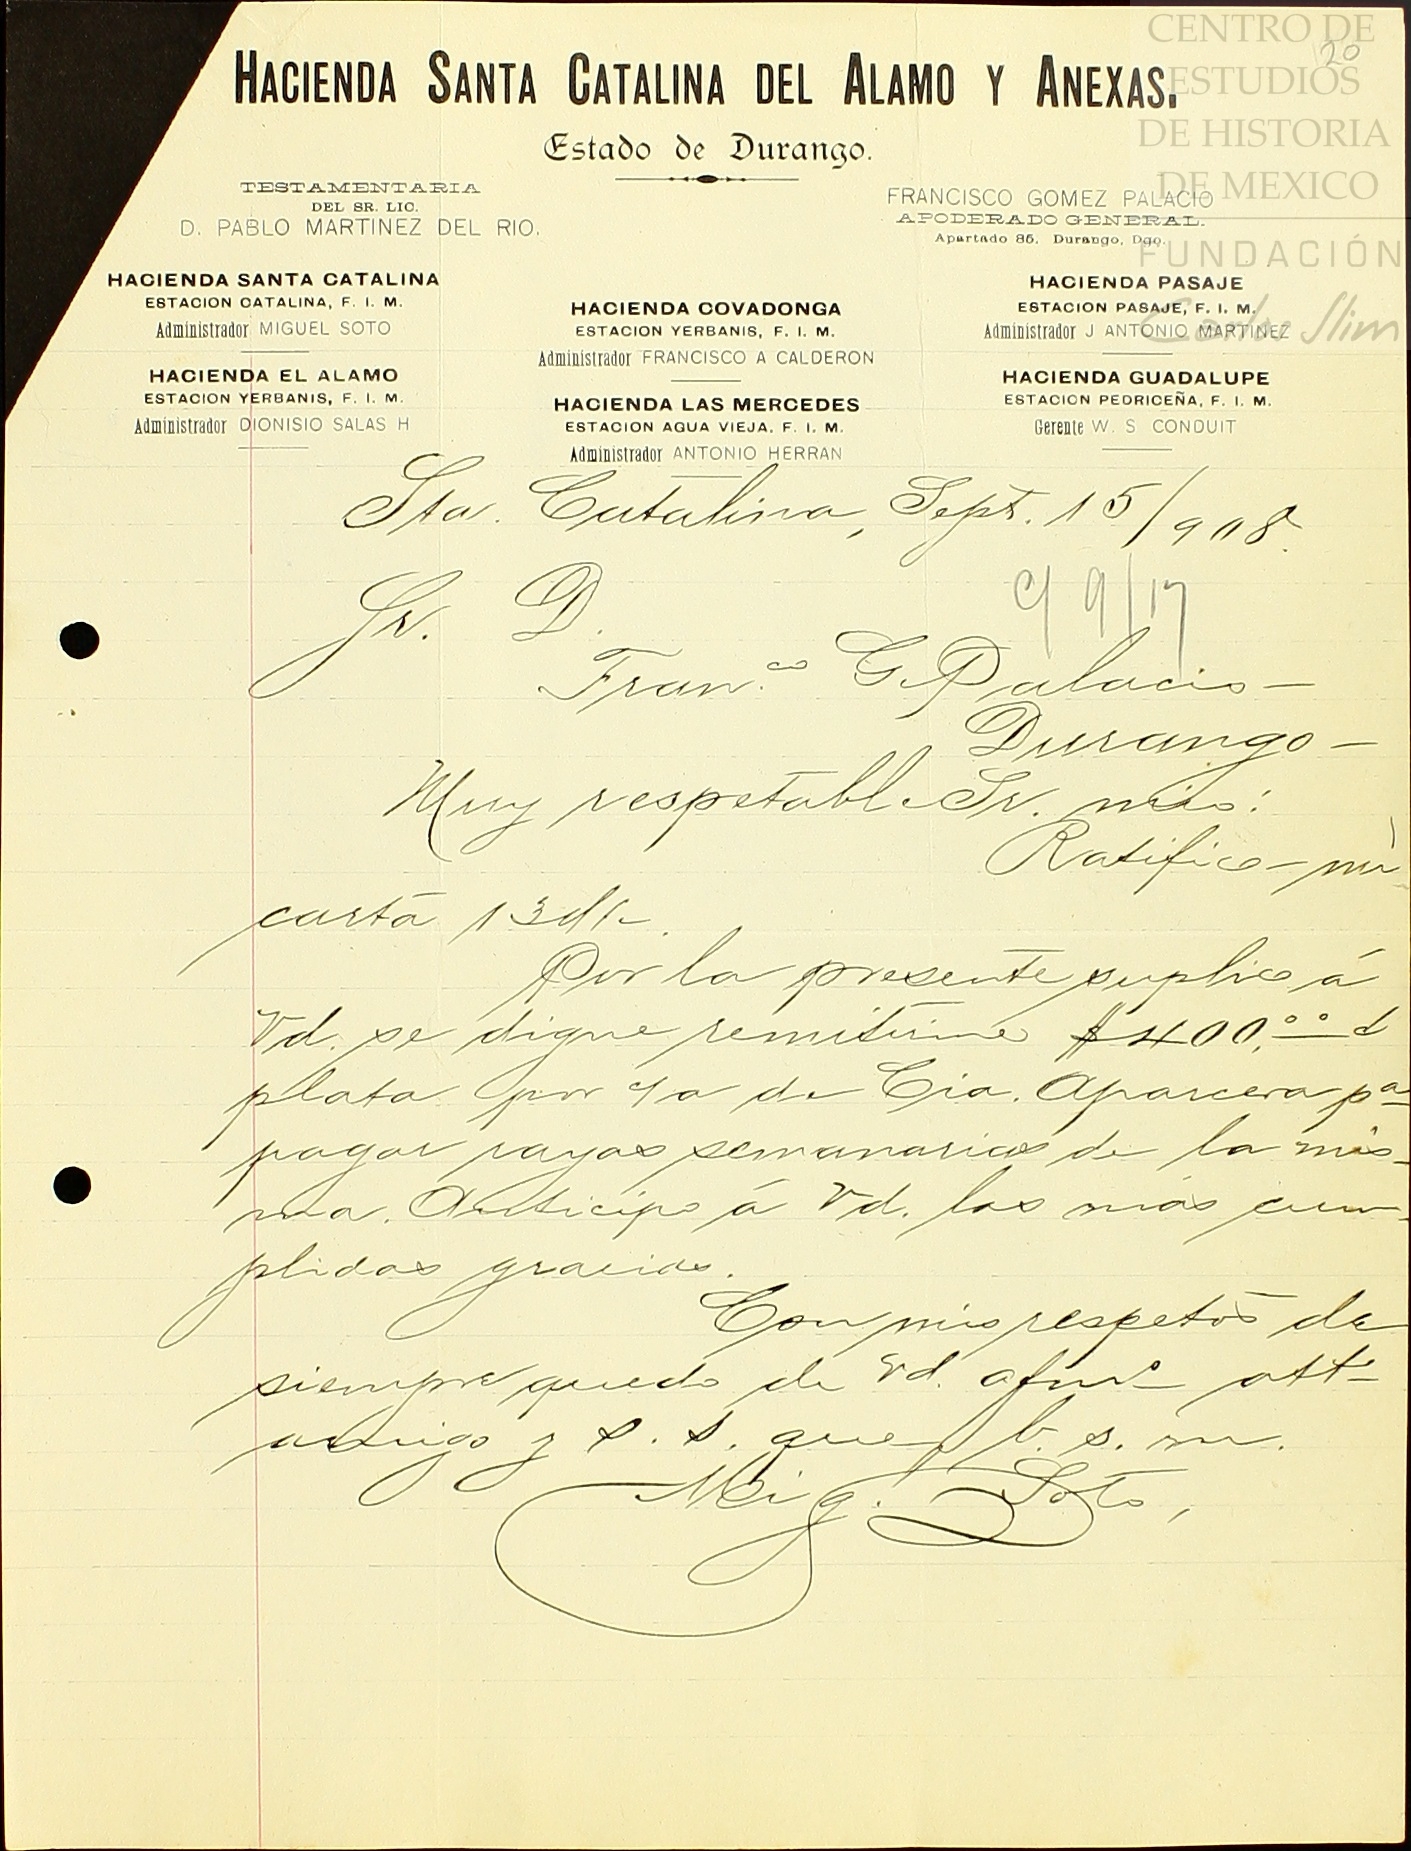 CENTRO DE
ESTUDIOS
DE HISTORIA
DE MEXICO
FUNDACIÓN
Carlos Slim
20
HACIENDA SANTA CATALINA DEL ALAMO Y ANEXAS.
Estado de Durango.
TESTAMENTARIA
DEL SR. LIC.
D. PABLO MARTINEZ DEL RIO.
FRANCISCO GOMEZ PALACIO
APODERADO GENERAL.
Apartado 85. Durango, Dgo.
HACIENDA SANTA CATALINA
ESTACION CATALINA, F. I. M.
Administrador MIGUEL SOTO
HACIENDA EL ALAMO
ESTACION YERBANIS, F. I. M.
Administrador DIONISIO SALAS H
HACIENDA COVADONGA
ESTACION YERBANIS, F. I. M.
Administrador FRANCISCO A CALDERON
HACIENDA LAS MERCEDES
ESTACION AGUA VIEJA, F. I. M.
Administrador ANTONIO HERRAN
HACIENDA PASAJE
ESTACION PASAJE, F. I. M.
Administrador J ANTONIO MARTINEZ
HACIENDA GUADALUPE
ESTACION PEDRICEÑA, F. I. M.
Gerente W. S CONDUIT
Sta. Catalina, Sept. 15/908.
9/17
Sr. D.
Fran.co G. Palacio
Durango
Muy respetable Sr. mio:
Ratifico mi
carta 13
Por la presente suplico á
Vd. se digne remitirme $400.00 d
plata por c/a de Cia. Aparcera pa
pagar rayas semanarias de la mis-
ma. Anticipo á Vd. las más cum-
plidas gracias.
Con mis respetos de
siempre quedo de Vd. afmo att
amigo y s. s. que b. s. m.
Mig. Soto,